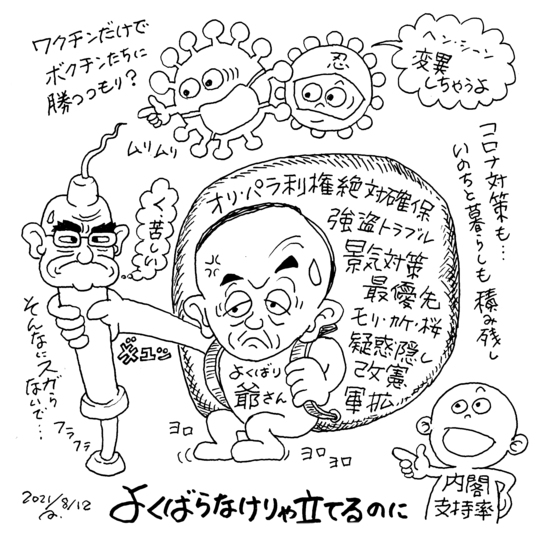 ワクチンだけで
ボクチンたちに
勝つつもり？
ムリムリ
忍
ヘン・シ〜ン
変異
しちゃうよ
コロナ対策も…
いのちと暮らしも積み残し
オリ・パラ利権絶対確保
強盗トラブル
景気対策
最優先
モリ・カケ・桜
疑惑隠し
改憲
軍拡
く、苦しい
ギュッ
そんなにスガら
ないで…
フラ
フラ
よくばり
爺さん
ヨロ
ヨロ
ヨロ
内閣
支持率
2021/8/12
よくばらなけりゃ立てるのに